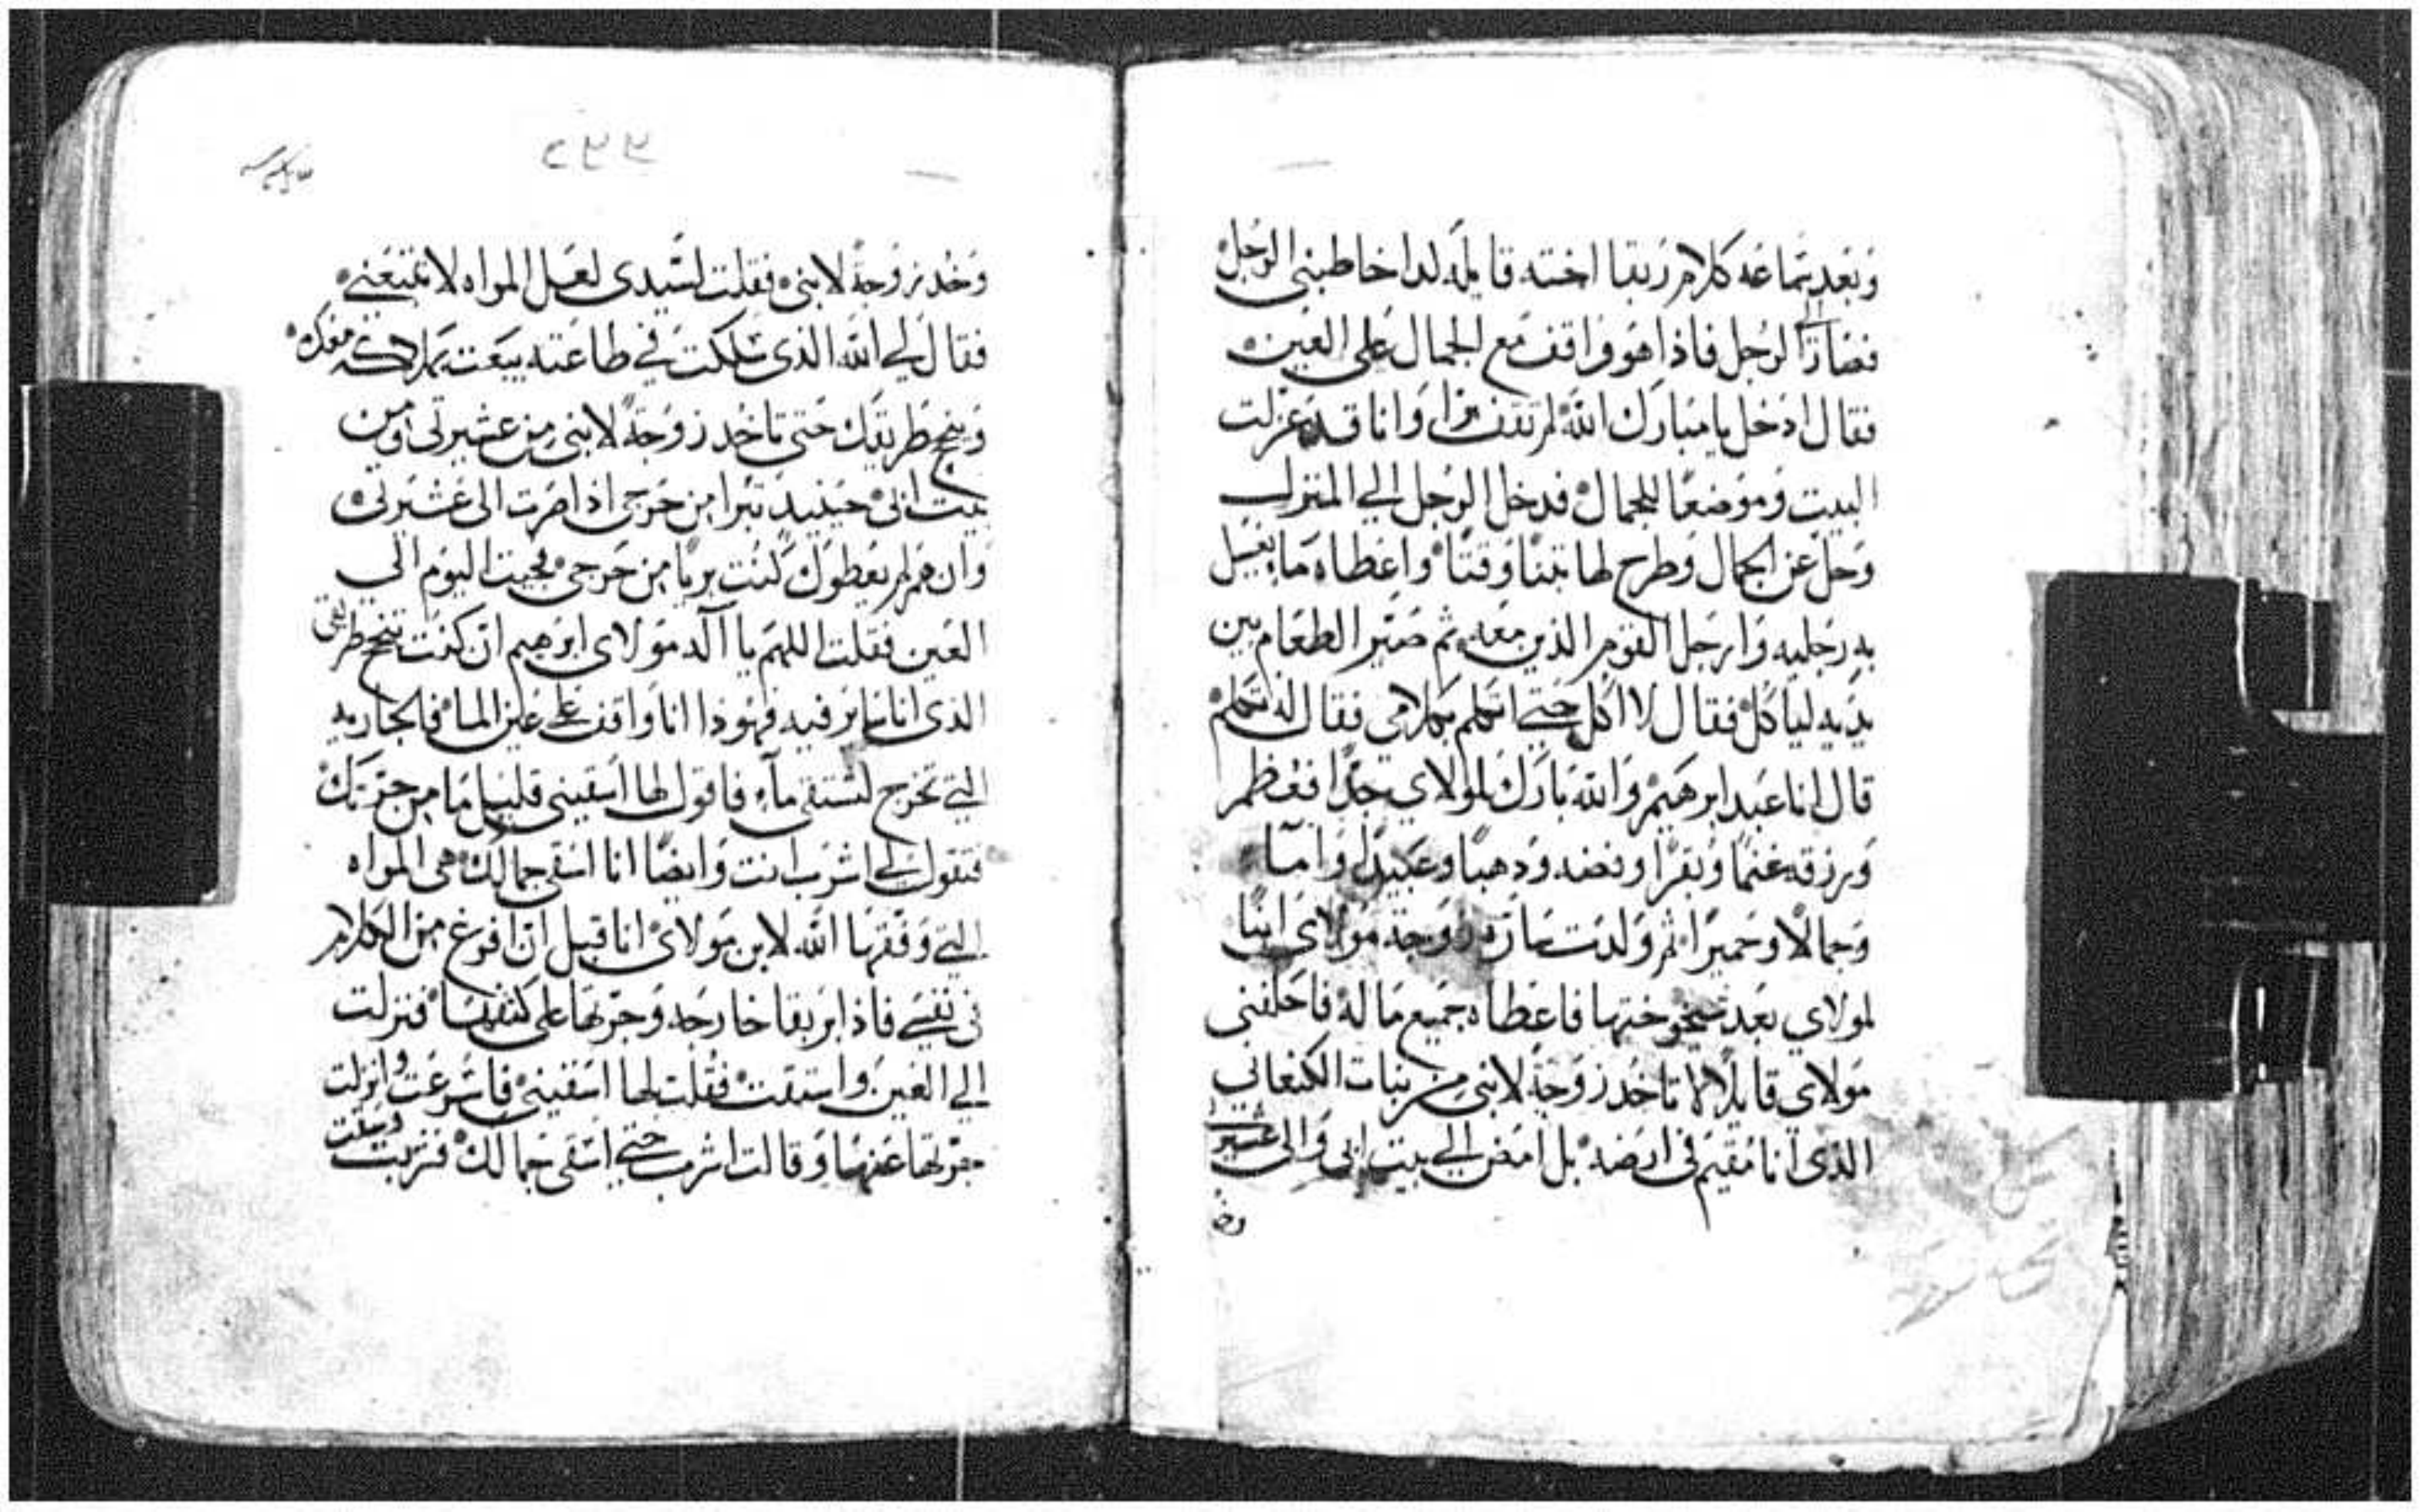 وبعد سماعه كلام ربقا اخته قايله لدا خاطبني الرجل
فصار الى الرجل فاذا هو واقف مع الجمال على العين
فقال ادخل يا مبارك الله لم تقف برا وانا قد عزلت
البيت وموضعا للجمال فدخل الرجل الي المنزل
وحل عن الجمال وطرح لها تبنا وقتا واعطاه ما يغسل
به رجليه وارجل القوم الذين معه ثم صير الطعام بين
يديه لياكل فقال لا اكل حتي اتكلم بكلامي فقال له تكلم
قال انا عبد ابرهيم والله بارك لمولاي جدا فعظم
ورزقه غنما وبقرا وفضه ودهبا وعبيدا وامآ
وجمالا وحميرا ثم ولدت ساره زوجة مولاي ابنا
لمولاي بعد شيخوختها فاعطاه جميع ماله فاحلفني
مولاي قايلا لا تاخد زوجة لابني من بنات الكنعاني
الذي انا مقيم في ارضه بل امض الي بيت ابي والى عشيرتي
وخد
وخد زوجة لابني فقلت لسيدي لعل المراه لا تتبعني
فقال لي الله الذي سلكت في طاعته يبعت بملاكه معك
وينجح طريقك حتي تاخد زوجة لابني من عشيرتي ومن
بيت ابي حينيد تبرا من حرجي اذا صرت الى عشيرتي
وان هم لم يعطوك كنت بريا من حرجي فجيت اليوم الي
العين فقلت اللهم يا اله مولاي ابرهيم ان كنت تنجح طريقي
الذي انا ساير فيه فهوذا انا واقف علي عين الما فالجاريه
التي تخرج لتستقي ماء فاقول لها اسقيني قليل ما من جرتك
فتقول لي اشرب انت وايضا انا اسقي جمالك هي المراه
التي وفقها الله لابن مولاي انا قبل ان افرغ من الكلام
في نفسي فاذا بربقا خارجه وجرتها على كتفها فنزلت
الي العين واستقت فقلت لها اسقيني فاسرعت وانزلت
جرتها عنها وقالت اشرب حتي اسقي جمالك فشربت وسقت